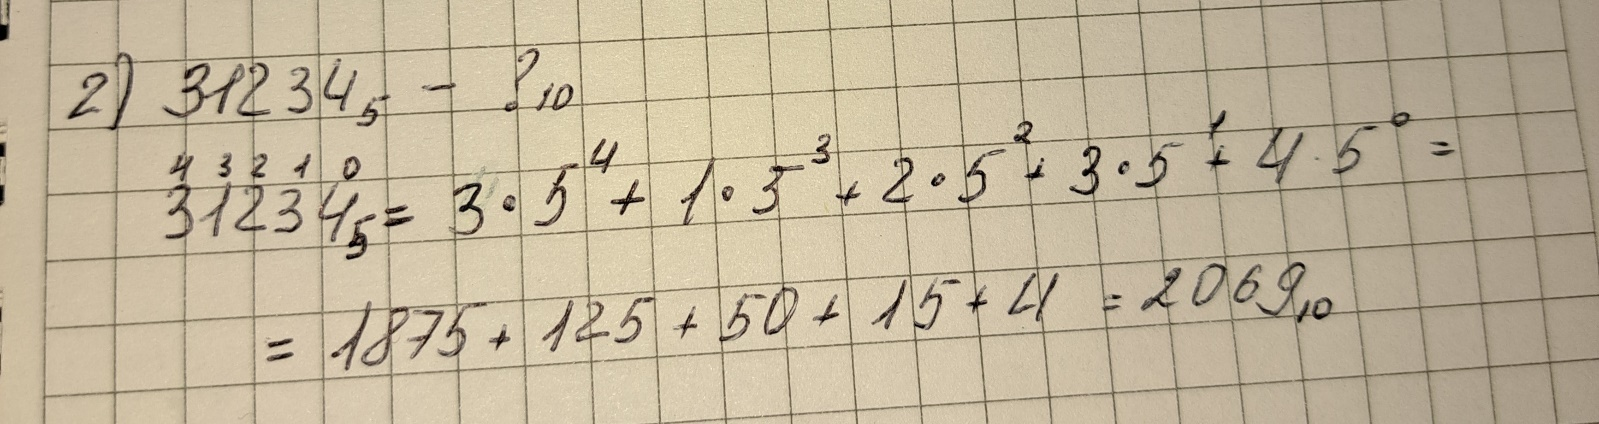 2) 31234₅ - ?₁₀
4 3 2 1 0
31234₅ = 3·5⁴ + 1·5³ + 2·5² + 3·5¹ + 4·5⁰ =
= 1875 + 125 + 50 + 15 + 4 = 2069₁₀